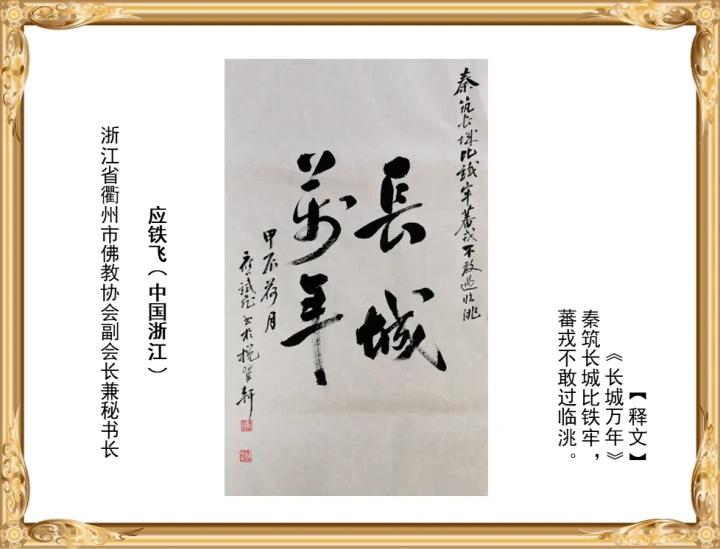 【释文】
《长城万年》
秦筑长城比铁牢，
蕃戎不敢过临洮。
秦筑长城比鐵牢蕃戎不敢过临洮
長城
萬年
甲辰荷月
应鐵飞书於悦翠轩
应铁飞（中国浙江）
浙江省衢州市佛教协会副会长兼秘书长